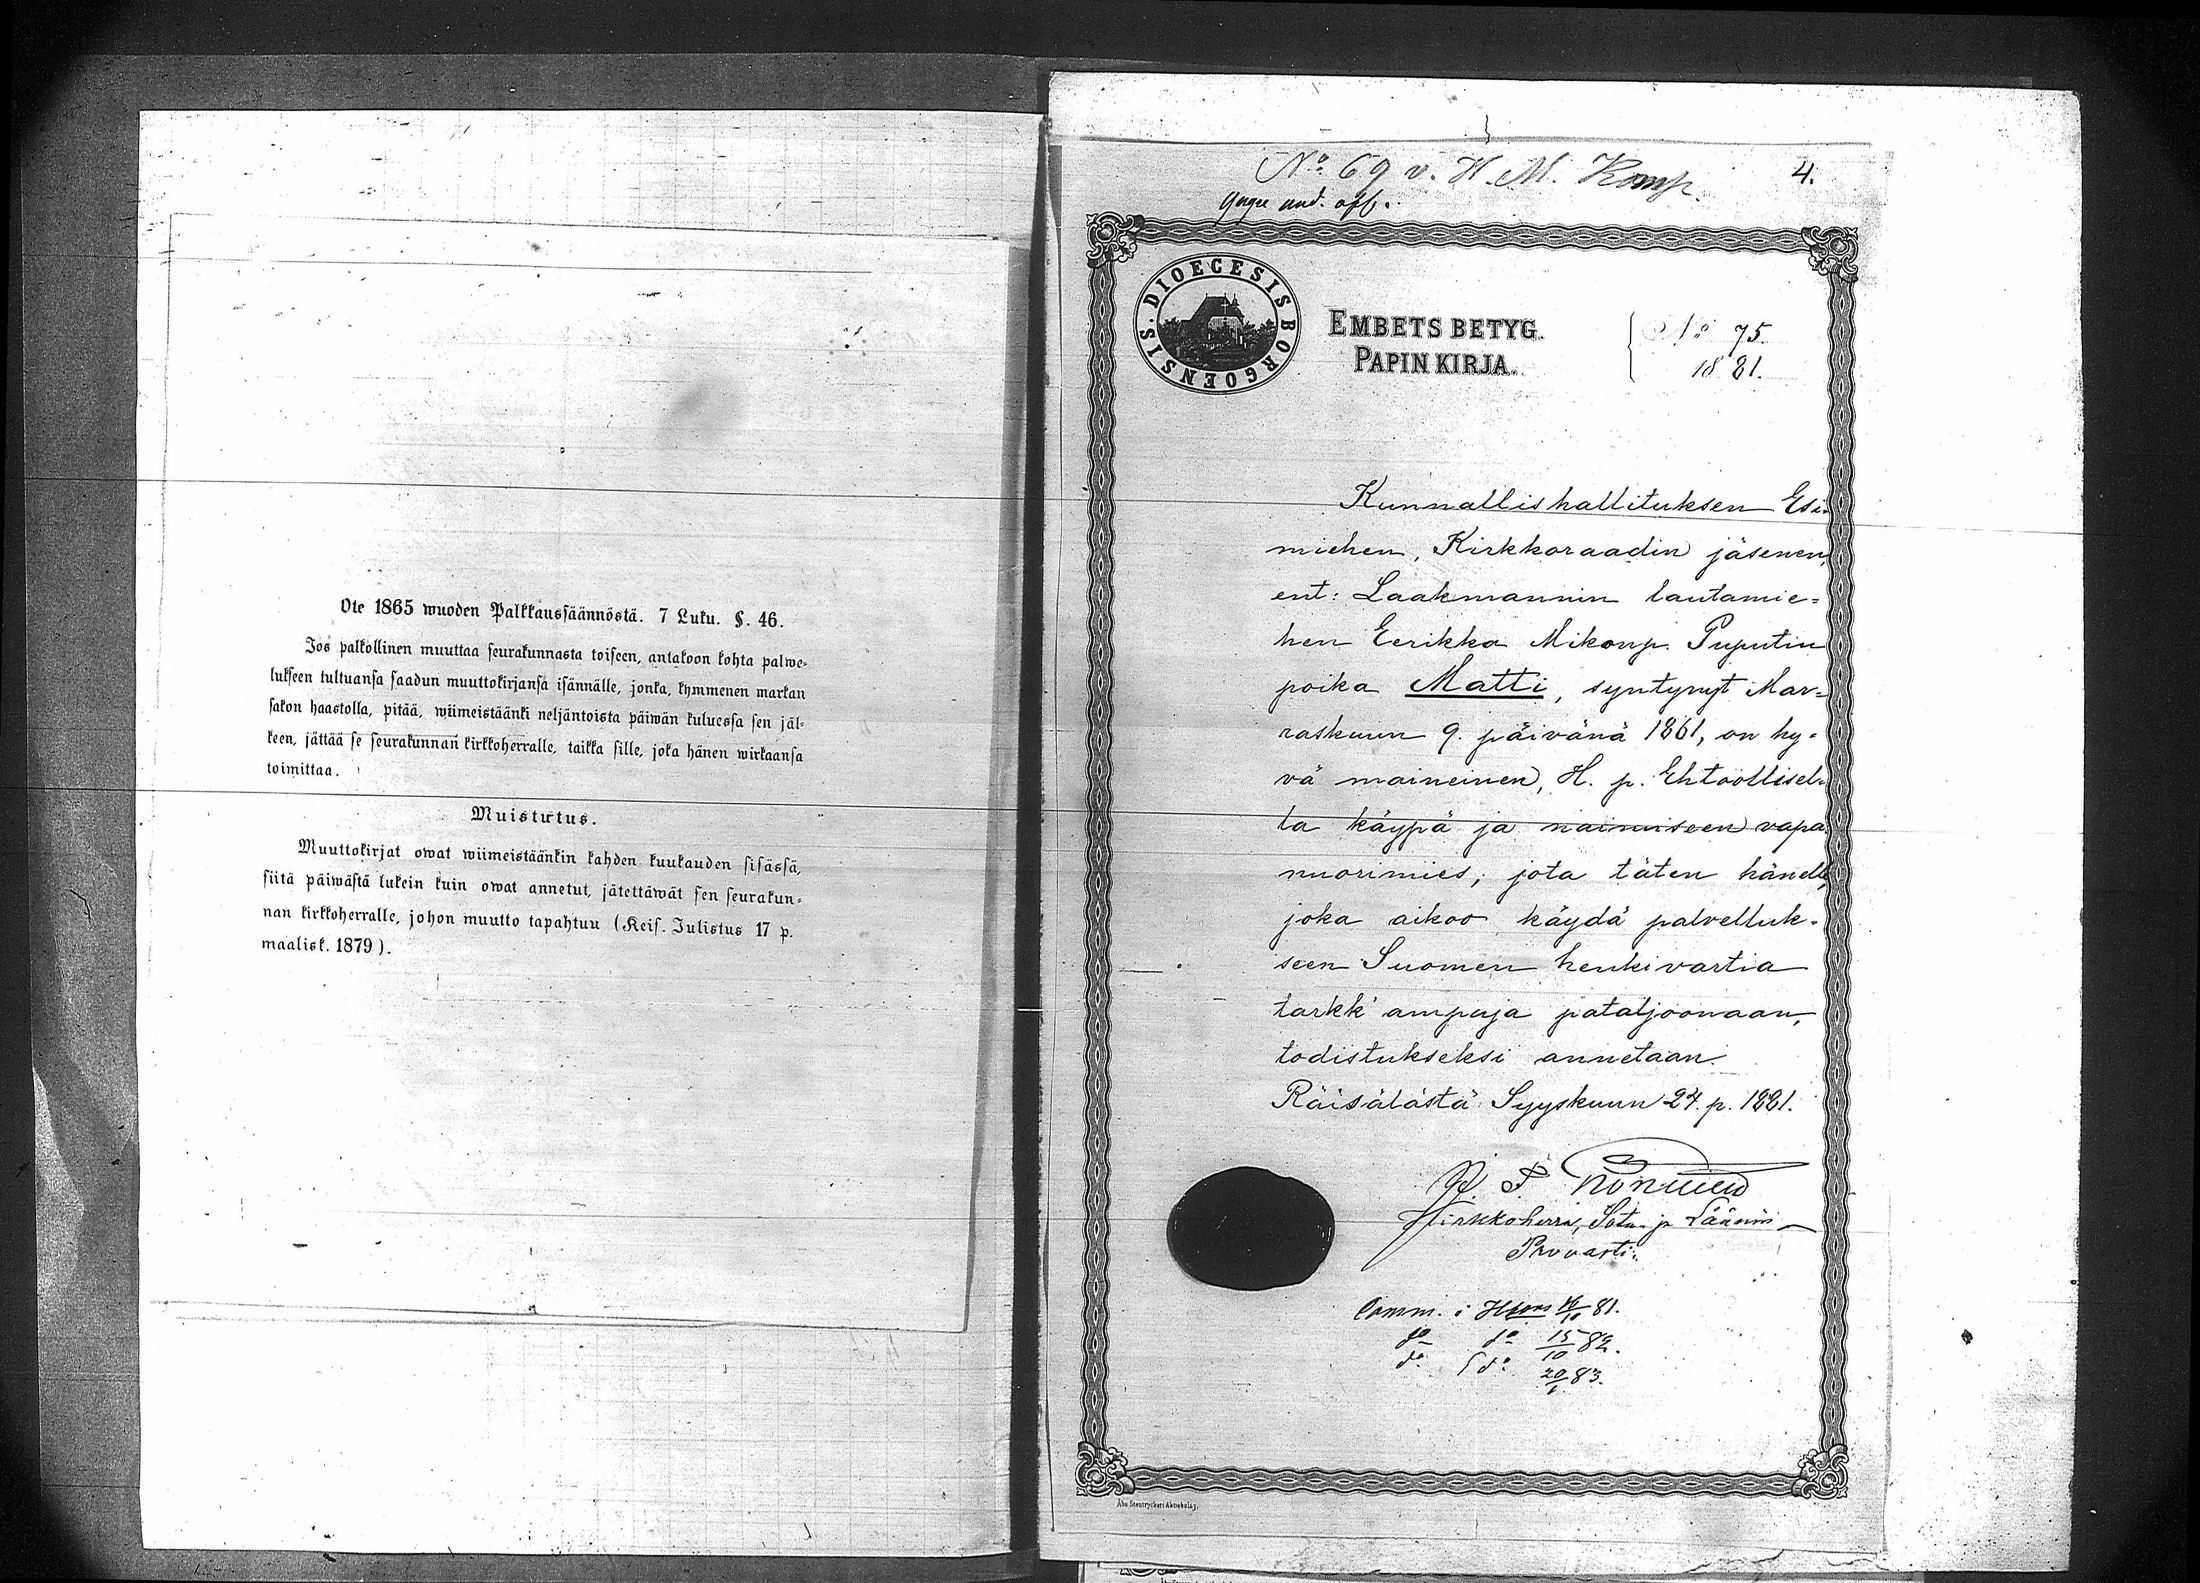 Ote 1865 wuoden Palkkaussäännöstä. 7 Luku. §. 46.
Jos palkollinen muuttaa seurakunnasta toiseen, antakoon kohta palwe-
lukseen tultuansa saadun muuttokirjansa isännälle, jonka, kymmenen markan
sakon haastolla, pitää, wiimeistäänki neljäntoista päiwän kuluessa sen jäl-
keen, jättää se seurakunnan kirkkoherralle, taikka sille, joka hänen wirkaansa
toimittaa.
Muistutus.
Muuttokirjat owat wiimeistäänkin kahden kuukauden sisässä,
siitä päiwästä lukein kuin owat annetut, jätettäwät sen seurakun-
nan kirkkoherralle, johon muutto tapahtuu (Keis. Julistus 17 p.
maalisk. 1879).
No 69 v. H. M. Komp. 4.
yngre und. off.
DIOECESIS BORGOENSIS.
EMBETS BETYG.
PAPIN KIRJA.
No 75.
1881.
Kunnallishallituksen Esi-
miehen, Kirkkoraadin jäsenen,
ent: Laakmannin lautamie-
hen Eerikko Mikonp. Puputin
poika Matti, syntynyt Mar-
raskuun 9. päivänä 1861, on hy-
vä maineinen, H. p. Ehtoollisel-
la käypä ja naimiseen vapa
nuorimies; jota täten hänelle,
joka aikoo käydä palvelluk-
seen Suomen henkivartia
tarkk'ampuja pataljoonaan,
todistukseksi annetaan.
Räisälästä Syyskuun 24. p. 1881.
Kirkkoherra, Sota- ja Läänin
Provasti.
Comm. i H:fors 16/10 81.
do do 15/10 82.
do do 20/1 83.
Åbo Stentryckeri Aktiebolag.